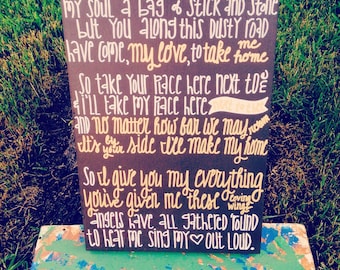 my soul a bag of stick and stone
but you along this dusty road
have come, my love, to take me home
so take your place here next to me
& I'll take my place here
and no matter how far we may roam
it's by your side I'll make my home
so I give you my everything
you've given me these loving wings
angels have all gathered round
to hear me sing my ♡ out loud.